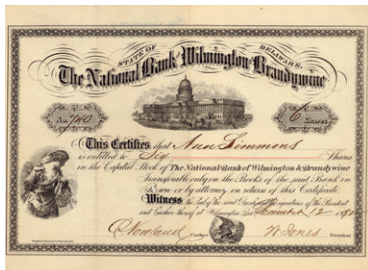 STATE OF DELAWARE
The National Bank of Wilmington & Brandywine
No. 740
6 Shares
This Certifies that Ann Simmons
is entitled to Six Shares
in the Capital Stock of The National Bank of Wilmington & Brandywine
Transferable only on the Books of the said Bank in
Person or by attorney on return of this Certificate.
Witness the Seal of the said Bank and signatures of the President
and Cashier thereof at Wilmington
Cashier
President